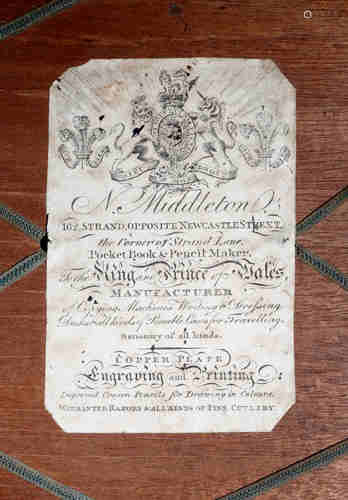 N. Middleton
162 STRAND, OPPOSITE NEWCASTLE STREET,
the Corner of Strand Lane,
Pocket Book & Pencil Maker,
To the King and Prince of Wales
MANUFACTURER
of Copying Machines Writing & Dressing
Desks, all kinds of Portable Cases for Travelling,
Stationery of all kinds.
COPPER PLATE
Engraving and Printing
Improved Crayon Pencils for Drawing in Colours,
WARRANTED RAZORS & ALL KINDS OF FINE CUTLERY